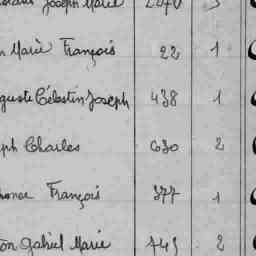 Joseph Marie 2270 3
n Marie François 22 1
guste Célestin Joseph 438 1
ph Charles 630 2
honse François 377 1
on Gabriel Marie 745 2